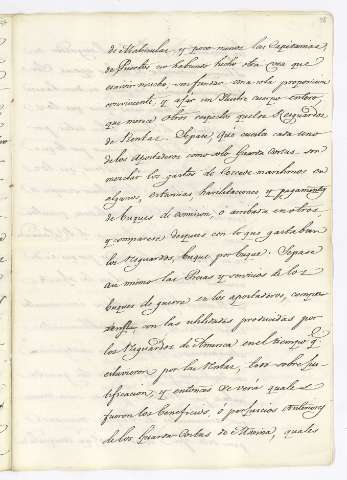 de Matricular, y poco menos las Capitanias,
de Puertos, no habiendo hecho otra cosa que
escrivir mucho, sin fundar una sola proposicion
convincente, y ajar un Ilustre cuerpo entero,
que merece otros respectos que los Resguardos
de Rentas. Sepase, que cuesta cada uno
de los Apostaderos como solo Guarda Costas, sin
mezclar los gastos de
algunos, estancias, habilitaciones y pagamentos
de buques de comision, ó arribada en otros
y comparese despues con lo que gastaban
los Resguardos, buque por buque. Sepase
asi mismo las Presas y servicios de los
buques de guerra en los apostaderos, compa-
con las utilidades producidas por
los Resguardos de America en el tiempo q.e
estuvieron por la Rentas, todo sobre jus-
tificacion, y entonces se verá quales
fueron los beneficios, ó perjuicios anteriores
de los Guarda-Costas de Marina, quales